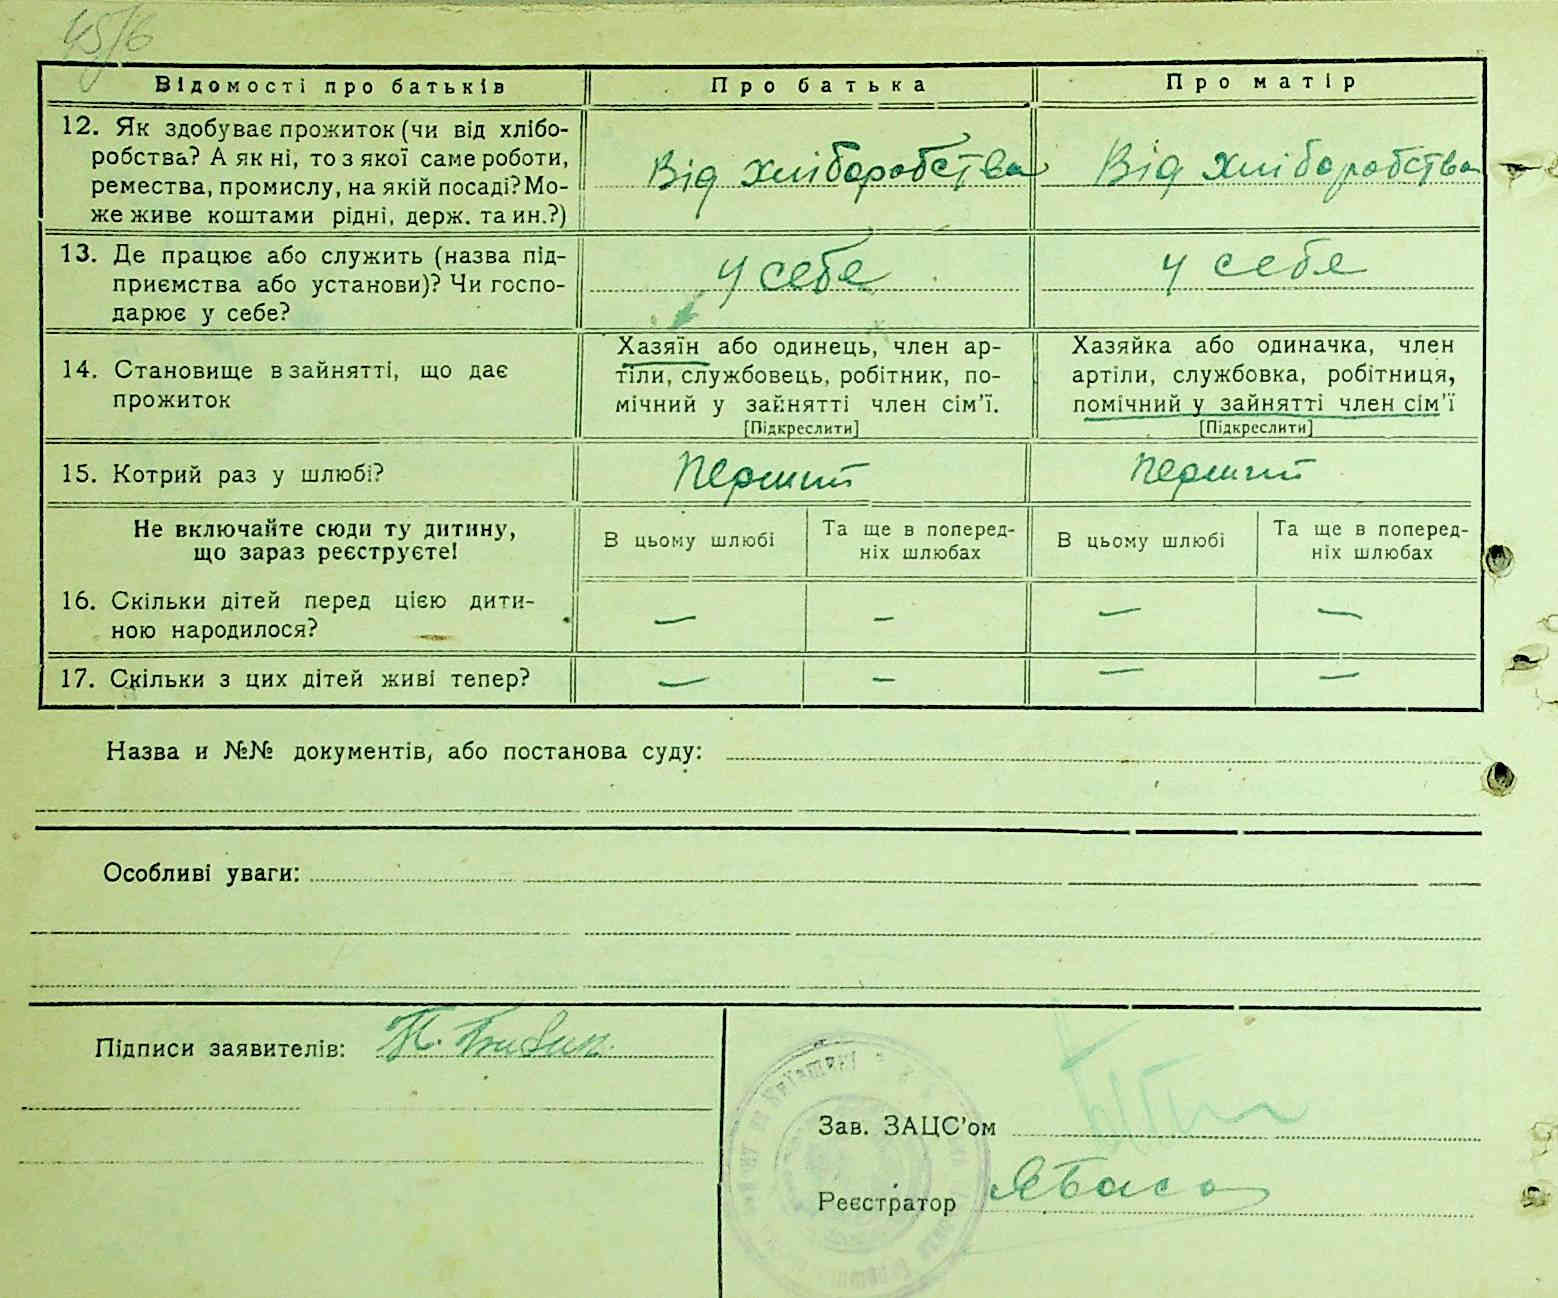 45/6
Відомості про батьків Про батька Про матір
12. Як здобуває прожиток (чи від хлібо-
робства? А як ні, то з якої саме роботи,
ремества, промислу, на якій посаді? Мо-
же живе коштами рідні, держ. та ин.?)
Від хліборобства Від хліборобства
13. Де працює або служить (назва під-
приємства або установи)? Чи госпо-
дарює у себе?
у себе у себе
14. Становище в зайнятті, що дає
прожиток
Хазяїн або одинець, член ар-
тіли, службовець, робітник, по-
мічний у зайнятті член сім'ї.
[Підкреслити]
Хазяйка або одиначка, член
артіли, службовка, робітниця,
помічний у зайнятті член сім'ї
[Підкреслити]
15. Котрий раз у шлюбі?
Перший Перший
Не включайте сюди ту дитину,
що зараз реєструєте!
В цьому шлюбі
Та ще в поперед-
ніх шлюбах
В цьому шлюбі
Та ще в поперед-
ніх шлюбах
16. Скільки дітей перед цією дити-
ною народилося?
— — — —
17. Скільки з цих дітей живі тепер?
— — — —
Назва и №№ документів, або постанова суду:
Особливі уваги:
Підписи заявителів:
Зав. ЗАЦС'ом
Реєстратор